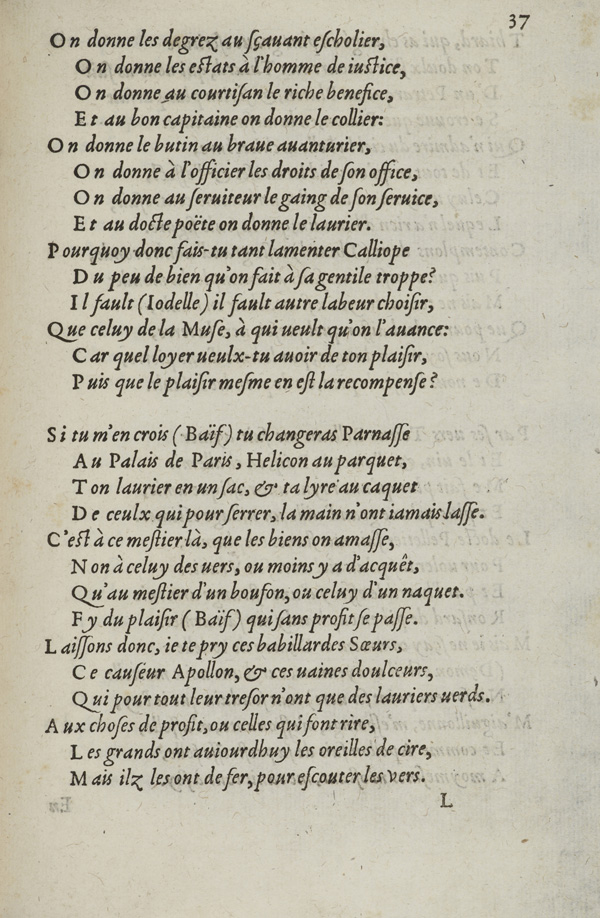 37
On donne les degrez au sçauant escholier,
On donne les estats à l'homme de iustice,
On donne au courtisan le riche benefice,
Et au bon capitaine on donne le collier:
On donne le butin au braue auanturier,
On donne à l'officier les droits de son office,
On donne au seruiteur le gaing de son seruice,
Et au docte poëte on donne le laurier.
Pourquoy donc fais-tu tant lamenter Calliope
Du peu de bien qu'on fait à sa gentile troppe?
Il fault (Iodelle) il fault autre labeur choisir,
Que celuy de la Muse, à qui ueult qu'on l'auance:
Car quel loyer ueulx-tu auoir de ton plaisir,
Puis que le plaisir mesme en est la recompense?
Si tu m'en crois (Baïf) tu changeras Parnasse
Au Palais de Paris, Helicon au parquet,
Ton laurier en un sac, & ta lyre au caquet
De ceulx qui pour serrer, la main n'ont iamais lasse.
C'est à ce mestier là, que les biens on amasse,
Non à celuy des uers, ou moins y a d'acquêt,
Qu'au mestier d'un boufon, ou celuy d'un naquet.
Fy du plaisir (Baïf) qui sans profit se passe.
Laissons donc, ie te pry ces babillardes Sœurs,
Ce causeur Apollon, & ces uaines doulceurs,
Qui pour tout leur tresor n'ont que des lauriers uerds.
Aux choses de profit, ou celles qui font rire,
Les grands ont auiourdhuy les oreilles de cire,
Mais ilz les ont de fer, pour escouter les vers.
L